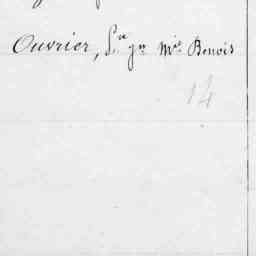 Ouvrier, Sr gn Mis Benois
14